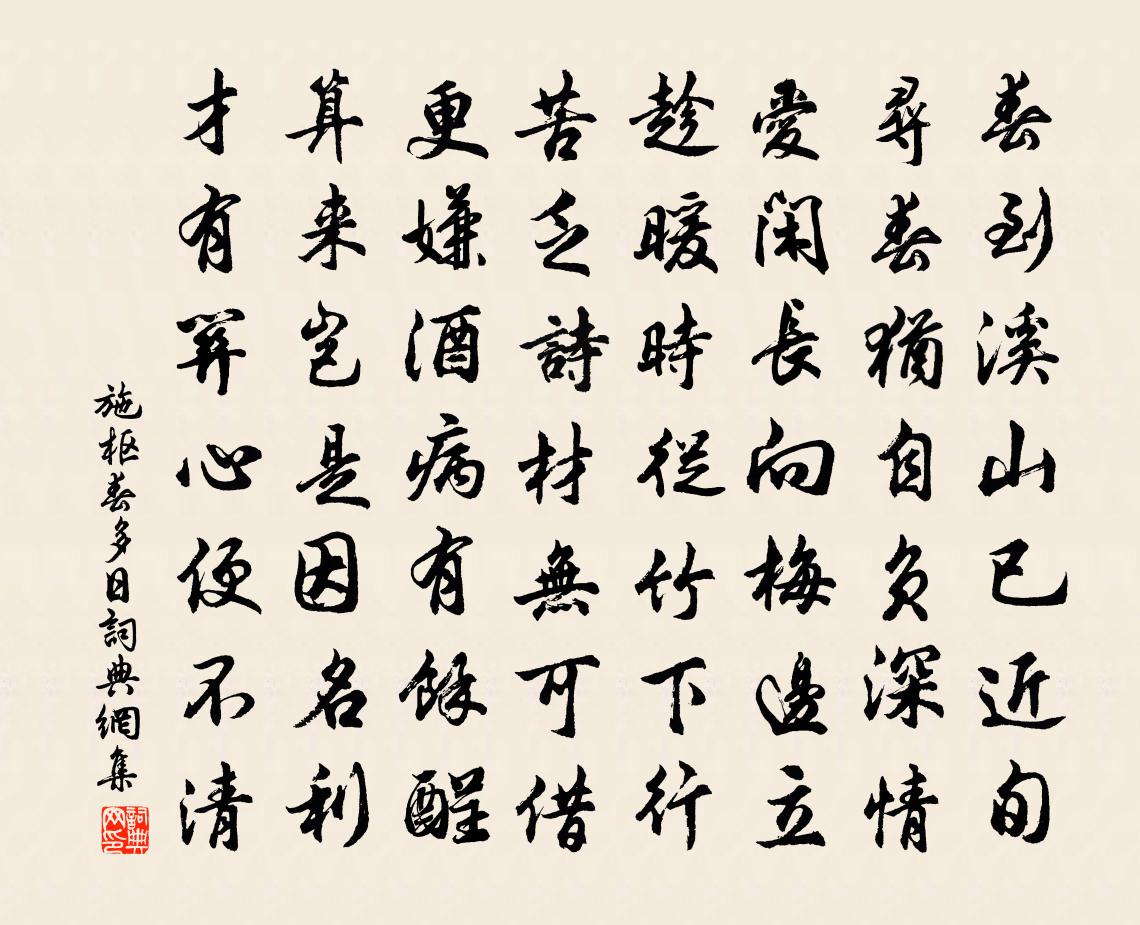 春到溪山已近旬
尋春猶自負深情
愛閑長向梅邊立
趁暖時從竹下行
苦乏詩材無可借
更嫌酒病有餘酲
算来豈是因名利
才有關心便不清
施枢春多日詞典網集
詞典网印